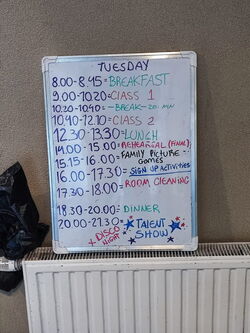 TUESDAY
8.00 - 8.45 = BREAKFAST
9.00 - 10.20 = CLASS 1
10.20 - 10.40 = - BREAK - 20 MIN
10.40 - 12.10 = CLASS 2
12.30 - 13.30 = LUNCH
14.00 - 15.00 = REHEARSAL (FINAL)
15.15 - 16.00 = FAMILY PICTURE - GAMES
16.00 - 17.30 = SIGN UP ACTIVITIES
17.30 - 18.00 = ROOM CLEANING
18.30 - 20.00 = DINNER
20.00 - 21.30 = TALENT SHOW
+ DISCO NIGHT